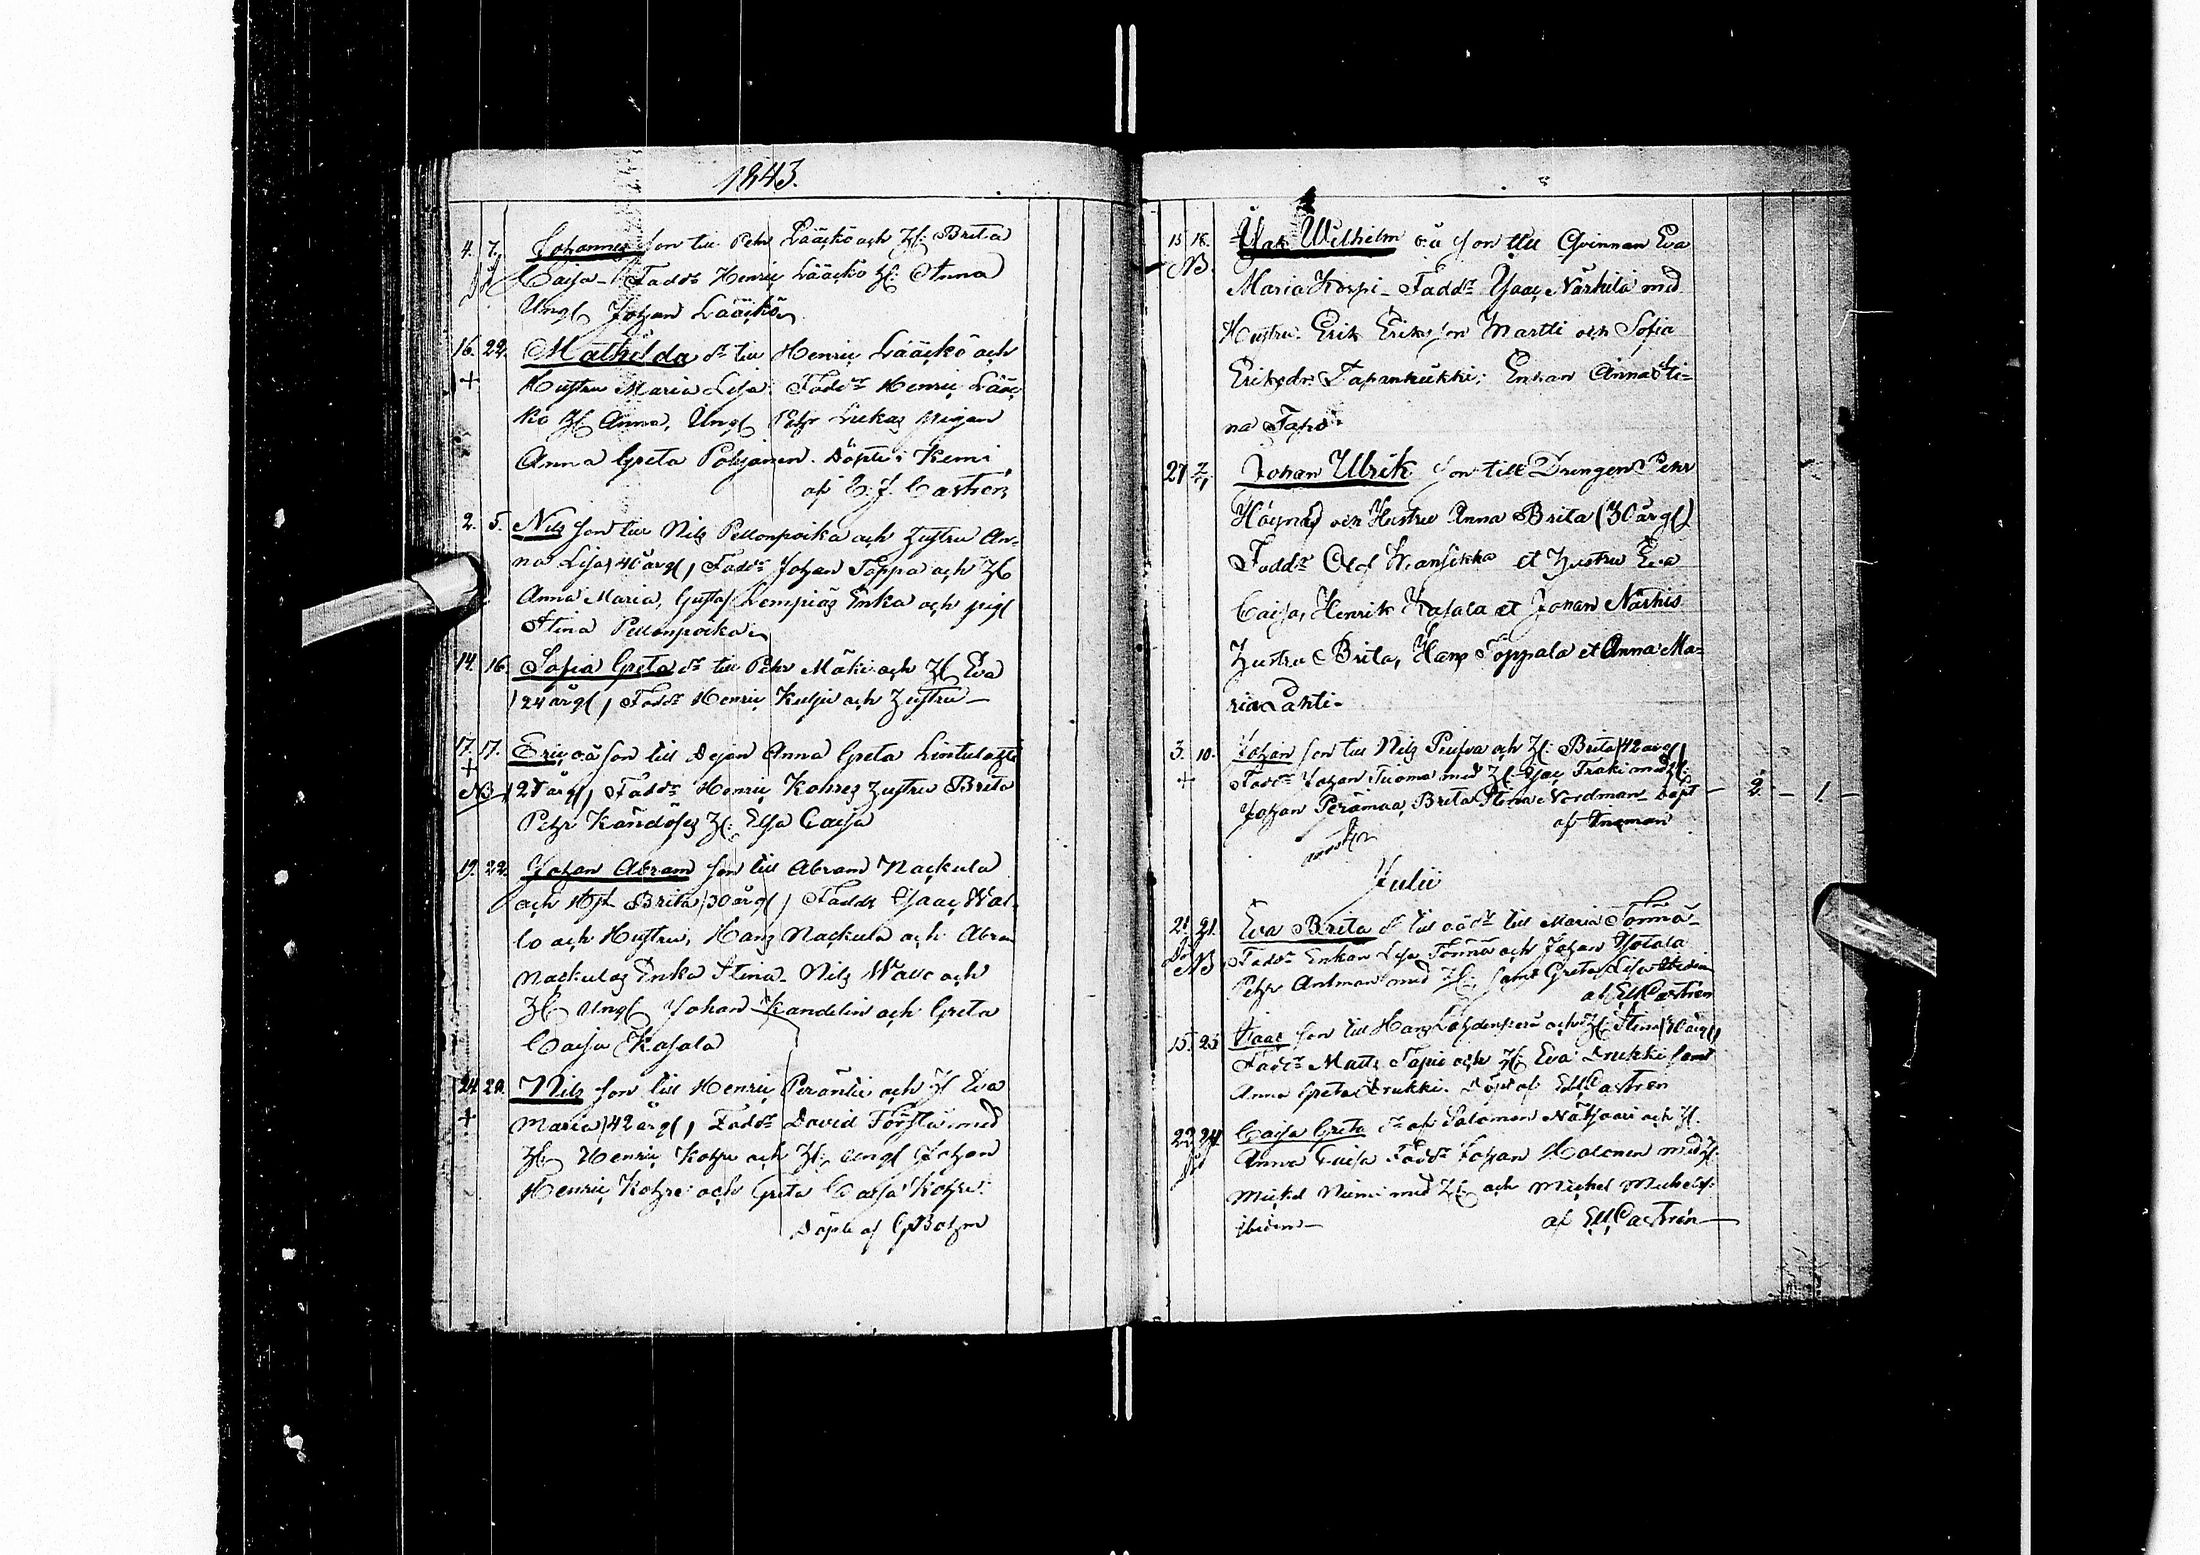 1843.
4. 7. Johannes son till Pehr Lääckö och H: Brita
Caisa - Faddr Henric Lääckö H: Anna
Ungl Johan Lääckö
16. 22. Mathilda dr till Henric Lääckö och
+ Hustru Maria Lisa. Faddr Henric Lääc
kö H Anna, Ungl Pehr Lukas pigan
Anna Greta Pohjanen. Döpt i Kemi
af Castrén
2. 5. Nils son till Nils Pellonpoika och Hustru An-
na Lisa 40 årg, Faddr Johan Toppa och H
Anna Maria, Gustaf Lempiäs Enka och pig
Stina Pellonpoika
14. 16. Sofia Greta dr till Pehr Mäki och H Eva
24 årg, Faddr Henric Kulju och Hustru -
17. 17. Eric oä son till Dejan Anna Greta
+ NB 27 årg, Faddr Henric Kohres Hustru Brita
Pehr H: Elsa Caisa
19. 22. Johan Abram son till Abram Nackula
och Hst Brita 30 årg, Faddr Isaac Wal-
lo och Hustru, Hans Nackula och Abra
Nackulas Enka Stina - Nils Wallo och
H Ungl Johan Kandelin och Greta
Caisa Kasala
24. Nils son till Henric Peräntie och H Eva
+ Maria 42 årg, Faddr David Törstä med
H Henric Kohre och H: Ungl Johan
Henric Kohre och Greta Caisa Kohre.
Döpte af Bohm
15 18. Isak Wilhelm oä son till Qvinnan Eva
NB. Maria Korpi - Faddr Isaac Närhilä med
Hustru. Erik Eriksson Martti och Sofia
Eriksdr. Enkan Anna Sti-
na Tapio
27 2/7 Johan Ulrik son till Drengen Pehr
och Hustru Anna Brita (30 årg)
Faddr Olof et Hustru Eva
Caisa, Henrik Kasala et Johan Närhis
Hustru Brita, Hans Toppala et Anna Ma-
ria Lahti -
3. 10. Johan son till Nils och H: Brita 42 årg
+ Faddr Johan Tuoma med H Isac Fraki med H:
Johan Perämaa, Brita Stina Nordman - Döpt - 2 - 1. -
af
Julii
21. 21. Eva Brita dr till oädr till Maria Tönnä -
NB Faddr Enkan Lisa Tönnä och Johan Yotala
Pehr Antman med H: samt Greta Lisa
af Castrén
15. 25 Isaac son till Hans och H: Stina 30 årg,
Faddr Matts Tapio och H: Eva Drukki samt
Anna Greta Drukki. Döpt af Castrén
22 24. Caisa Greta dr af Salomon och H.
Anna Caisa Faddr Johan Halonen med H:
Michel Niemi med H: och Michel
ibidem - af Castrén -